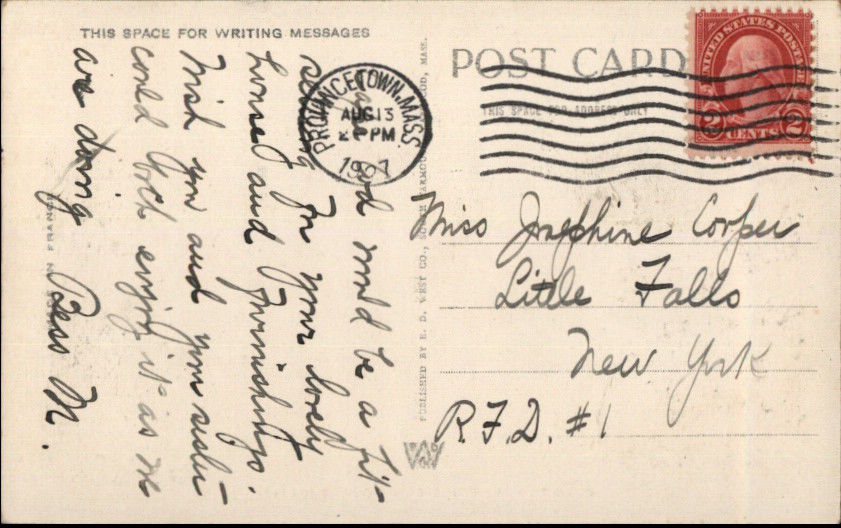 THIS SPACE FOR WRITING MESSAGES
would be a fit-
for your lovely
house and furnishings.
Wish you and your sister
could both enjoy it as we
are doing Bess M.
IN FRANCE
PUBLISHED BY E. D. WEST CO., SOUTH YARMOUTH, MASS.
POST CARD
THIS SPACE FOR ADDRESS ONLY
PROVINCETOWN, MASS.
AUG 13
PM
UNITED STATES POSTAGE
2 CENTS 2
Miss Josephine Cooper
Little Falls
New York
R.F.D. #1